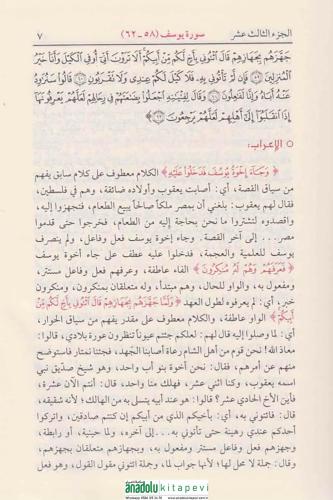 الجزء الثالث عشر سورة يوسف (٥٨ - ٦٢) ٧
جَهَّزَهُم بِجَهَازِهِمْ قَالَ ٱئْتُونِى بِأَخٍ لَّكُم مِّنْ أَبِيكُمْ أَلَا تَرَوْنَ أَنِّىٓ أُوفِى ٱلْكَيْلَ وَأَنَا۠ خَيْرُ
ٱلْمُنزِلِينَ ﴿٥٩﴾ فَإِن لَّمْ تَأْتُونِى بِهِۦ فَلَا كَيْلَ لَكُمْ عِندِى وَلَا تَقْرَبُونِ ﴿٦٠﴾ قَالُوا۟ سَنُرَٰوِدُ
عَنْهُ أَبَاهُ وَإِنَّا لَفَٰعِلُونَ ﴿٦١﴾ وَقَالَ لِفِتْيَٰنِهِ ٱجْعَلُوا۟ بِضَٰعَتَهُمْ فِى رِحَالِهِمْ لَعَلَّهُمْ يَعْرِفُونَهَآ
إِذَا ٱنقَلَبُوٓا۟ إِلَىٰٓ أَهْلِهِمْ لَعَلَّهُمْ يَرْجِعُونَ ﴿٦٢﴾
○ الإعراب:
﴿وَجَآءَ إِخْوَةُ يُوسُفَ فَدَخَلُوا۟ عَلَيْهِ﴾ الكلام معطوف على كلام سابق يفهم
من سياق القصة، أي: أصابت يعقوب وأولاده ضائقة، وهم في فلسطين،
فقال لهم يعقوب: بلغني أن بمصر ملكاً صالحاً يبيع الطعام، فتجهزوا إليه،
واقصدوه لتشتروا ما نحن بحاجة إليه من الطعام، فخرجوا حتى قدموا
مصر... إلى آخر القصة. وجاء إخوة يوسف فعل وفاعل، ولم يتصرف
يوسف للعلمية والعجمة، فدخلوا عليه عطف على جاء أخوة يوسف
﴿فَعَرَفَهُمْ وَهُمْ لَهُۥ مُنكِرُونَ﴾ الفاء عاطفة، وعرفهم فعل وفاعل مستتر،
ومفعول به، والواو للحال، وهم مبتدأ، وله متعلقان بمنكرون، ومنكرون
خبر، أي: لم يعرفوه لطول العهد ﴿وَلَمَّا جَهَّزَهُم بِجَهَازِهِمْ قَالَ ٱئْتُونِى بِأَخٍ لَّكُم مِّنْ
أَبِيكُمْ﴾ الواو عاطفة، والكلام معطوف على مقدر يفهم من سياق الحوار،
أي: لما وصلوا إليه قال لهم: لعلكم جئتم عيوناً تنظرون عورة بلادي، قالوا:
معاذ الله! نحن قوم من أهل الشام رعاة أصابنا الجهد، فجئنا نمتار فاستوضح
منهم عن أمرهم، فقال: نحن أخوة بنو أب واحد، وهو شيخ صديق نبي
اسمه يعقوب، وكنا اثني عشر، فهلك منا واحد، قال: أنتم الآن عشرة،
فأين الأخ الحادي عشر؟ قالوا: هو عند أبيه يتسلى به من الهالك؛ لأنه شقيقه،
قال: فائتوني به، أي: بأخيكم الذي من أبيكم إن كنتم صادقين، واتركوا
أحدكم عندي رهينة حتى تأتوني به...إلى آخره، ولما حينية، أو رابطة،
وجهزهم فعل وفاعل مستتر ومفعول به، وبجهازهم متعلقان بجهزهم،
وقال: جملة لا محل لها؛ لأنها جواب لما، وجملة ائتوني مقول القول، وهو فعل
anadolukitapevi